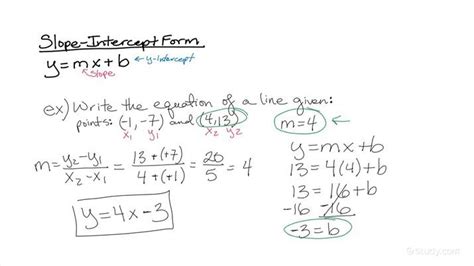 Slope-Intercept Form
y=mx+b ← y-intercept
slope
ex) Write the equation of a line given:
points: (-1, -7) and (4,13)
x₁ y₁ x₂ y₂
m=4 ←
m = y₂-y₁/x₂-x₁ = 13+(+7)/4+(+1) = 20/5 = 4
y=4x-3
y=mx+b
13 = 4(4)+b
13 = 16+b
-16 -16
-3=b
© Study.com